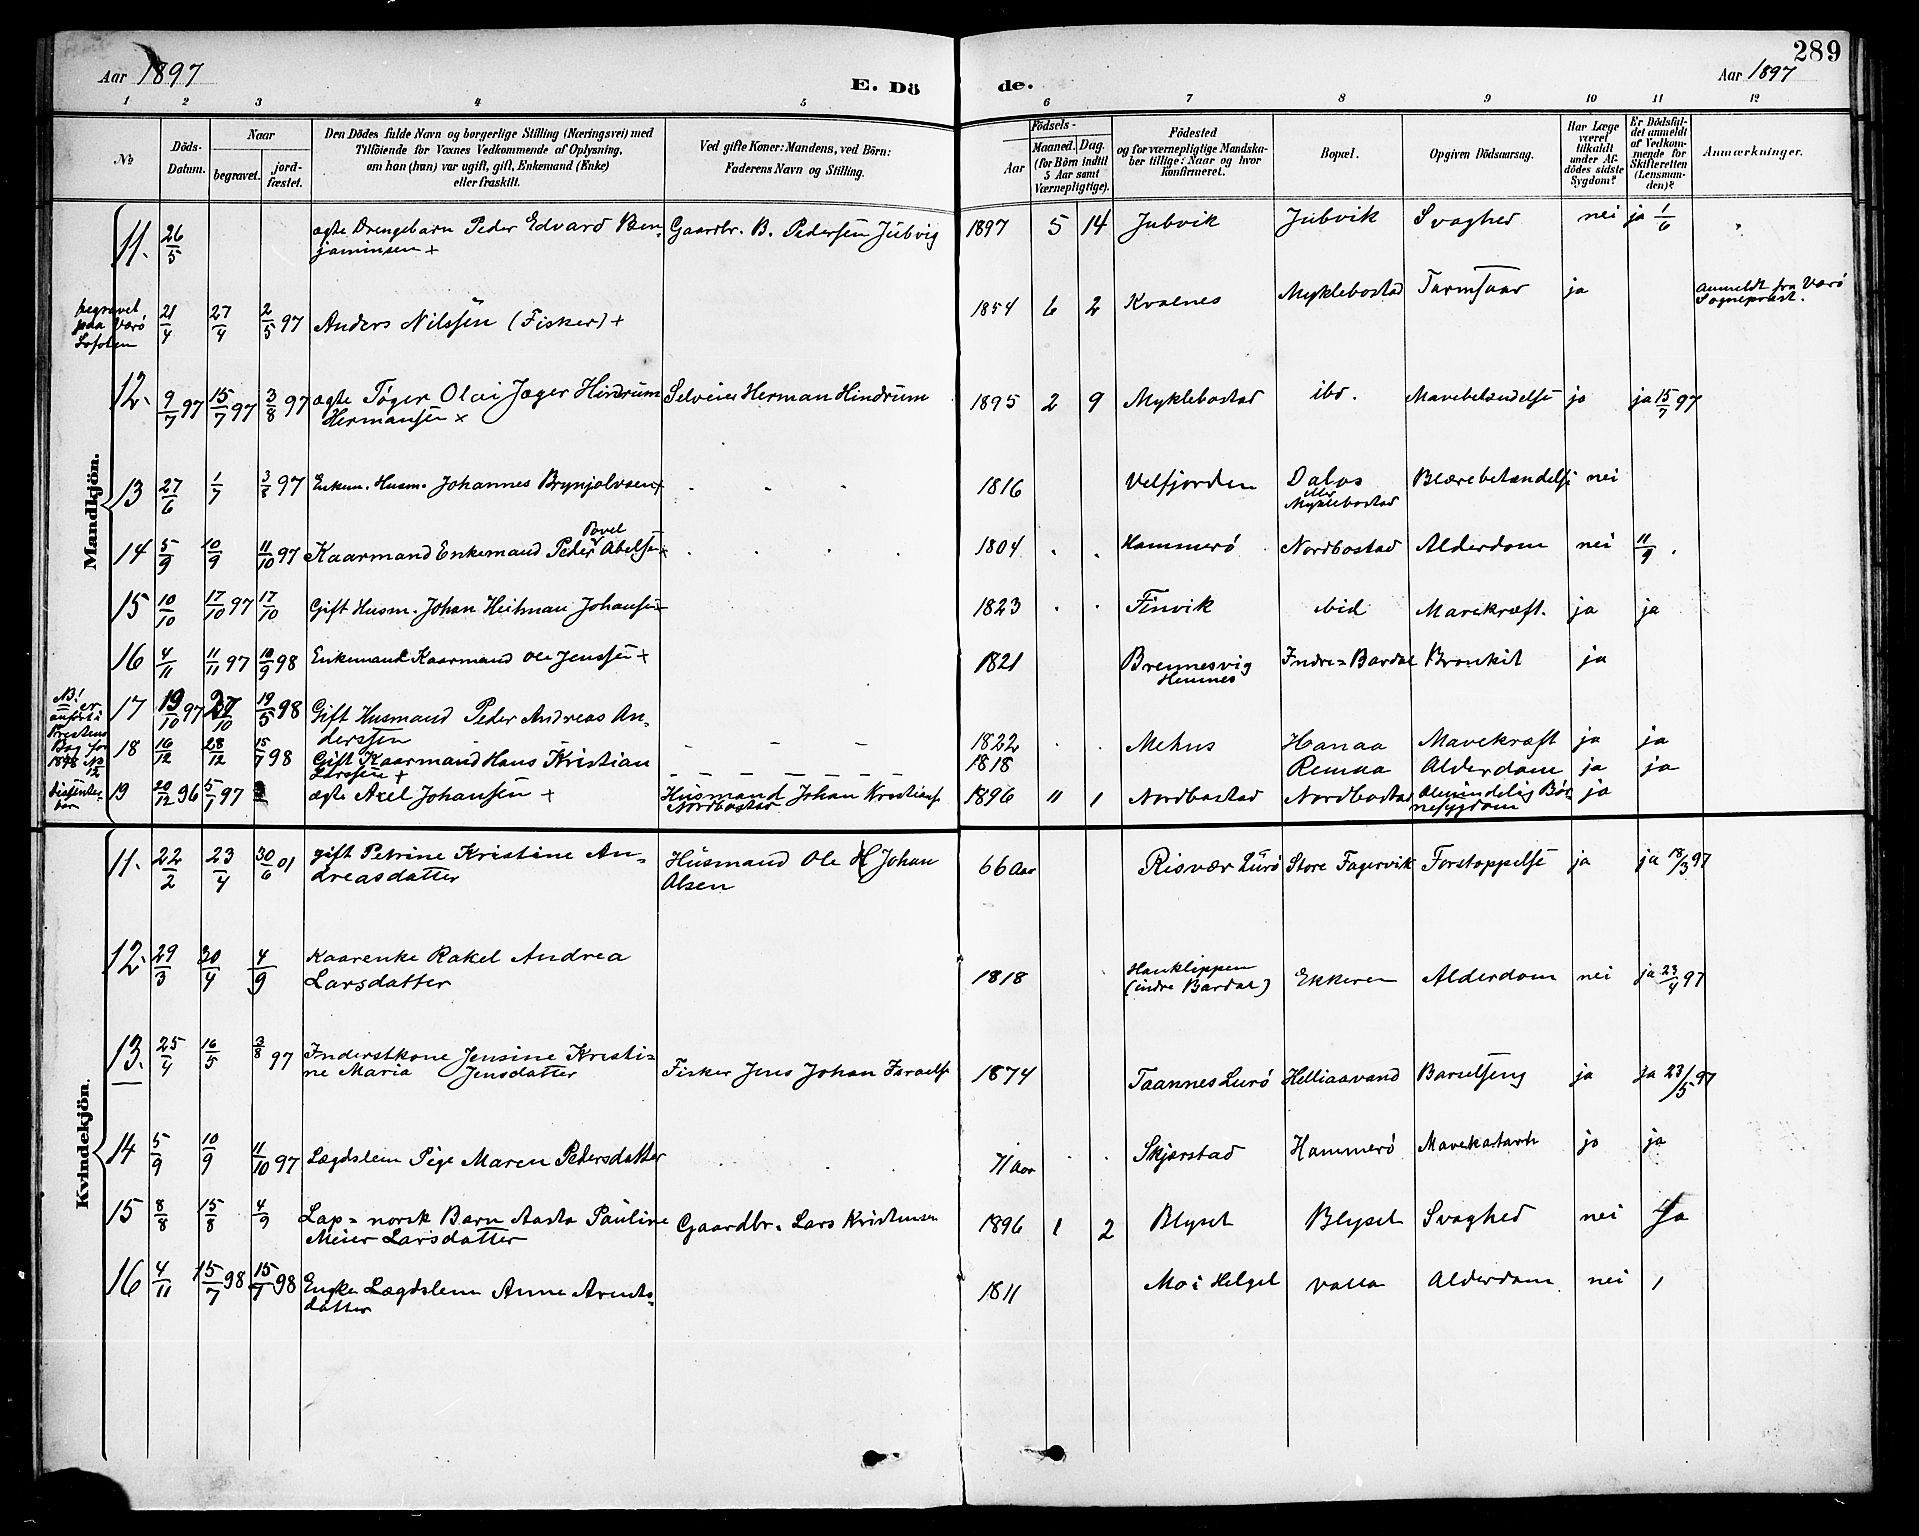 289
Aar 1897
E. Dö
de.
Aar 1897
1 2 3 4 5 6 7 8 9 10 11 12
No
Döds-Datum.
Naar
begravet.
jord-fæstet.
Den Dödes fulde Navn og borgerlige Stilling (Næringsvei) med
Tilföiende for Voxnes Vedkommende af Oplysning,
om han (hun) var ugift, gift, Enkemand (Enke)
eller fraskilt.
Ved gifte Koner: Mandens, ved Börn:
Faderens Navn og Stilling.
Födsels-
Aar
Maaned. Dag.
(for Börn indtil
5 Aar samt
Værnepligtige).
Födested
og for værnepligtige Mandska-
ber tillige: Naar og hvor
konfirmeret.
Bopæl.
Opgiven Dödsaarsag.
Har Læge
været
tilkaldt
under Af-
dödes sidste
Sygdom?
Er Dödsfal-
det anmeldt
af Vedkom-
mende for
Skifteretten
(Lensman-
den)?
Anmærkninger.
Mandkjön.
11. 26/5 ægte Drengebarn Peder Edvard Ben- Gaardbr. B. Pedersen Jubvig 1897 5 14 Jubvik Jubvik Svaghed nei ja 1/6
jaminsen +
begravet
paa Værö
Lofoten
21/4 27/4 2/5 97 Anders Nilssen (Fisker) + 1854 6 2 Kvalnes Myklebostad ja Anmeldt fra Værö
Sognepræst.
12. 9/7 97 15/7 97 3/8 97 ægte Tøger Olai Jæger Hindrum Selveier Herman Hindrum 1895 2 9 Myklebostad ibd. Mavebetændelse ja ja 15/7 97
Hermansen x
13 27/6 1/7 3/8 97 Enkem. Husm. Johannes Brynjolvsen + 1816 Velfjorden Dalos Blærebetændelse nei
eller
Myklebostad
14 5/9 10/9 11/10 97 Kaarmand Enkemand Peder Povel Abelsen 1804 Hammerö Nordbostad Alderdom nei 11/9.
15 10/10 17/10 97 17/10 Gift Husm. Johan Heitman Johansen + 1823 Finvik ibid Mavekræft. ja ja
16 4/11 11/11 97 10/9 98 Enkemand Kaarmand Ole Jenssen + 1821 Brennesvig Indre-Bardal Bronkit ja
Hemnes
NB! er
anført i
Bog for
1898 No
12
17 19/10 97 27/10 19/5 98 Gift Husmand Peder Andreas An-
derssen 1822 Mehus Hanaa Mavekræft ja ja
18 16/12 28/12 15/7 98 Gift Kaarmand Hans Kristian 1818 Remaa Alderdom ja ja
Larssen +
Dissenter-
barn
19 20/12 96 5/1 97 ægte Axel Johansen + Husmand Johan Kristians 1896 11 1 Nordbostad Nordbostad Almindelig Bör- ja
Nordbostad nesygdom
Kvindekjön.
11. 22/2 23/4 30/6 01 gift Petrine Kristine An- Husmand Ole H Johan 66 Aar Risvær Lurö Store Fagervik Forstoppelse ja ja 18/3 97
dreasdatter Olsen
12. 29/3 30/4 4/9 Kaarenke Rakel Andrea
Larsdatter 1818 Hauklippen Ekkeren Alderdom nei ja 23/4 97
(indre Bardal)
13. 25/4 16/5 3/8 97 Inderstkone Jensine Kristi-
ne Maria Jensdatter Fisker Jens Johan Israels 1874 Taannes Lurö Helliaavand Barselseng ja ja 23/5 97
14 5/9 10/9 11/10 97 Lægdslem Pige Maren Pedersdatter 71 Aar Skjerstad Hammerö Mavekatarrh ja ja
15 8/8 15/8 4/9 Lap-norsk Barn Aasta Pauline Gaardbr. Lars Kristensen 1896 1 2 Blyset Blyset Svaghed nei Ja
Meier Larsdatter
16 4/11 15/7 98 15/7 98 Enke Lægdslem Anne Arents-
datter 1811 Mo i Helgel Valla Alderdom nei